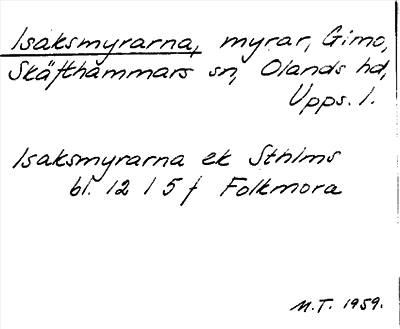 Isaksmyrarna, myrar, Gimo,
Skäfthammars sn, Olands hd,
Upps. l.
Isaksmyrarna ek Sthlms
bl. 12 I 5 f Folkmora
M.T. 1959.